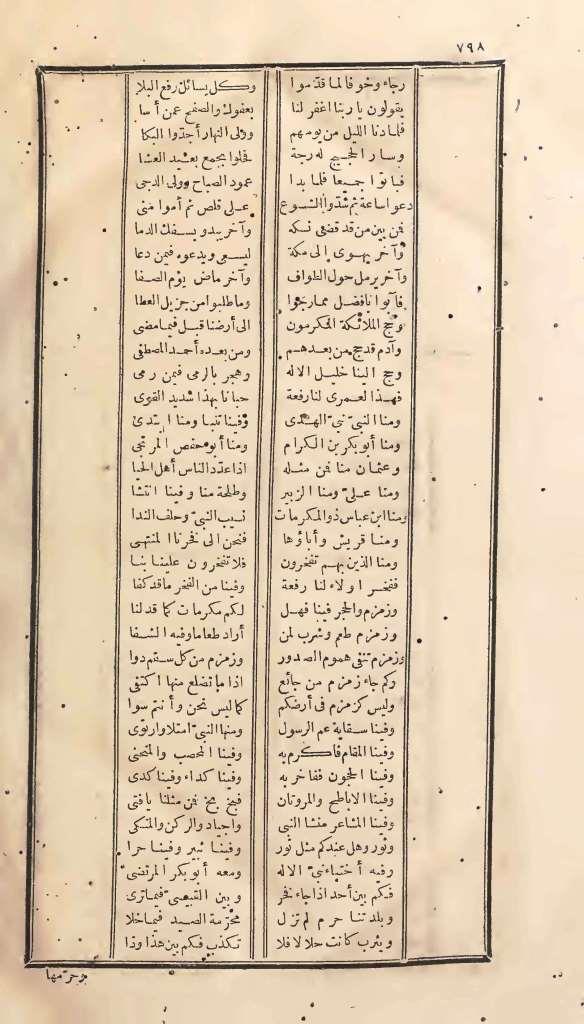 ٧٩٨
رجاء وخوفا لما قدّموا وكل يسائل رفع البلا
يقولون يا ربنا اغفر لنا بعفوك والصفح عمن أسا
فلما دنا الليل من يومهم وولى النهار أجدّوا البكا
وسار الحجيج له رجة فحلوا بجمع بعيد العشا
فباتوا جميعا فلما بدا عمود الصباح وولى الدجى
دعوا ساعة ثم شدّوا النسوع على قلص ثم أموا منى
فن بين من قد قضى نسكه وآخر يبدو يسفك الدما
وآخر يهوى الى مكة ليسعى ويدعوه فيمن دعا
وآخر يرمل حول الطواف وآخر ماض يؤم الصفا
فآبوا بأفضل مما رجوا وما طلبوا من جزيل العطا
وحج الملائكة المكرمون الى أرضنا قبل فيما مضى
وآدم قد حج من بعدهم ومن بعده أحمد المصطفى
وحج الينا خليل الاله وهجر بالرمى فيمن رمى
فهذا لعمرى لنا رفعة حبانا بهذا شديد القوى
ومنا النبىّ نبىّ الهدى وفينا تنبا ومنا ابتدى
ومنا أبو بكر بن الكرام ومنا أبو حفص المرتجى
وعثمان منا فن مثله اذا عدّد الناس أهل الحيا
ومنا علىّ ومنا الزبير وطلحة منا وفينا انتشا
ومنا ابن عباس ذو المكرمات نسيب النبىّ وحلف الندا
ومنا قريش وأباؤها فنحن الى فخرنا المنتهى
ومنا الذين بهم تفخرون فلا تفخرون علينا بنا
ففخر اولاء لنا رفعة وفينا من الفخر ما قد كفا
وزمزم والحجر فينا فهل لكم مكرمات كما قد لنا
وزمزم طعم وشرب لمن أراد طعاما وفيه الشفا
وزمزم تنفى هموم الصدور وزمزم من كل سقم دوا
وكم جاء زمزم من جائع اذا ما تضلع منها اكتفى
وليس كزمزم فى أرضكم كما ليس نحن وأنتم سوا
وفينا سقاية عم الرسول ومنها النبىّ امتلا وارتوى
وفينا المقام فأكرم به وفينا المحصب والمنحنى
وفينا الحجون ففاخر به وفينا كداء وفينا كدى
وفينا الاباطح والمروتان فبخ بخ فن مثلنا يا فتى
وفينا المشاعر منشا النبى واجياد والركن والمتكى
وثور وهل عندكم مثل ثور وفينا ثبير وفينا حرا
وفيه أختباء نبىّ الاله ومعه أبو بكر المرتضى
فكم بين أحد اذا جاء فخر وبين القبيسىّ فيما ترى
وبلدتنا حرم لم تزل محرّمة الصيد فيما خلا
ويثرب كانت حلالا فلا تكذب فكم بين هذا وذا
وحرّمها